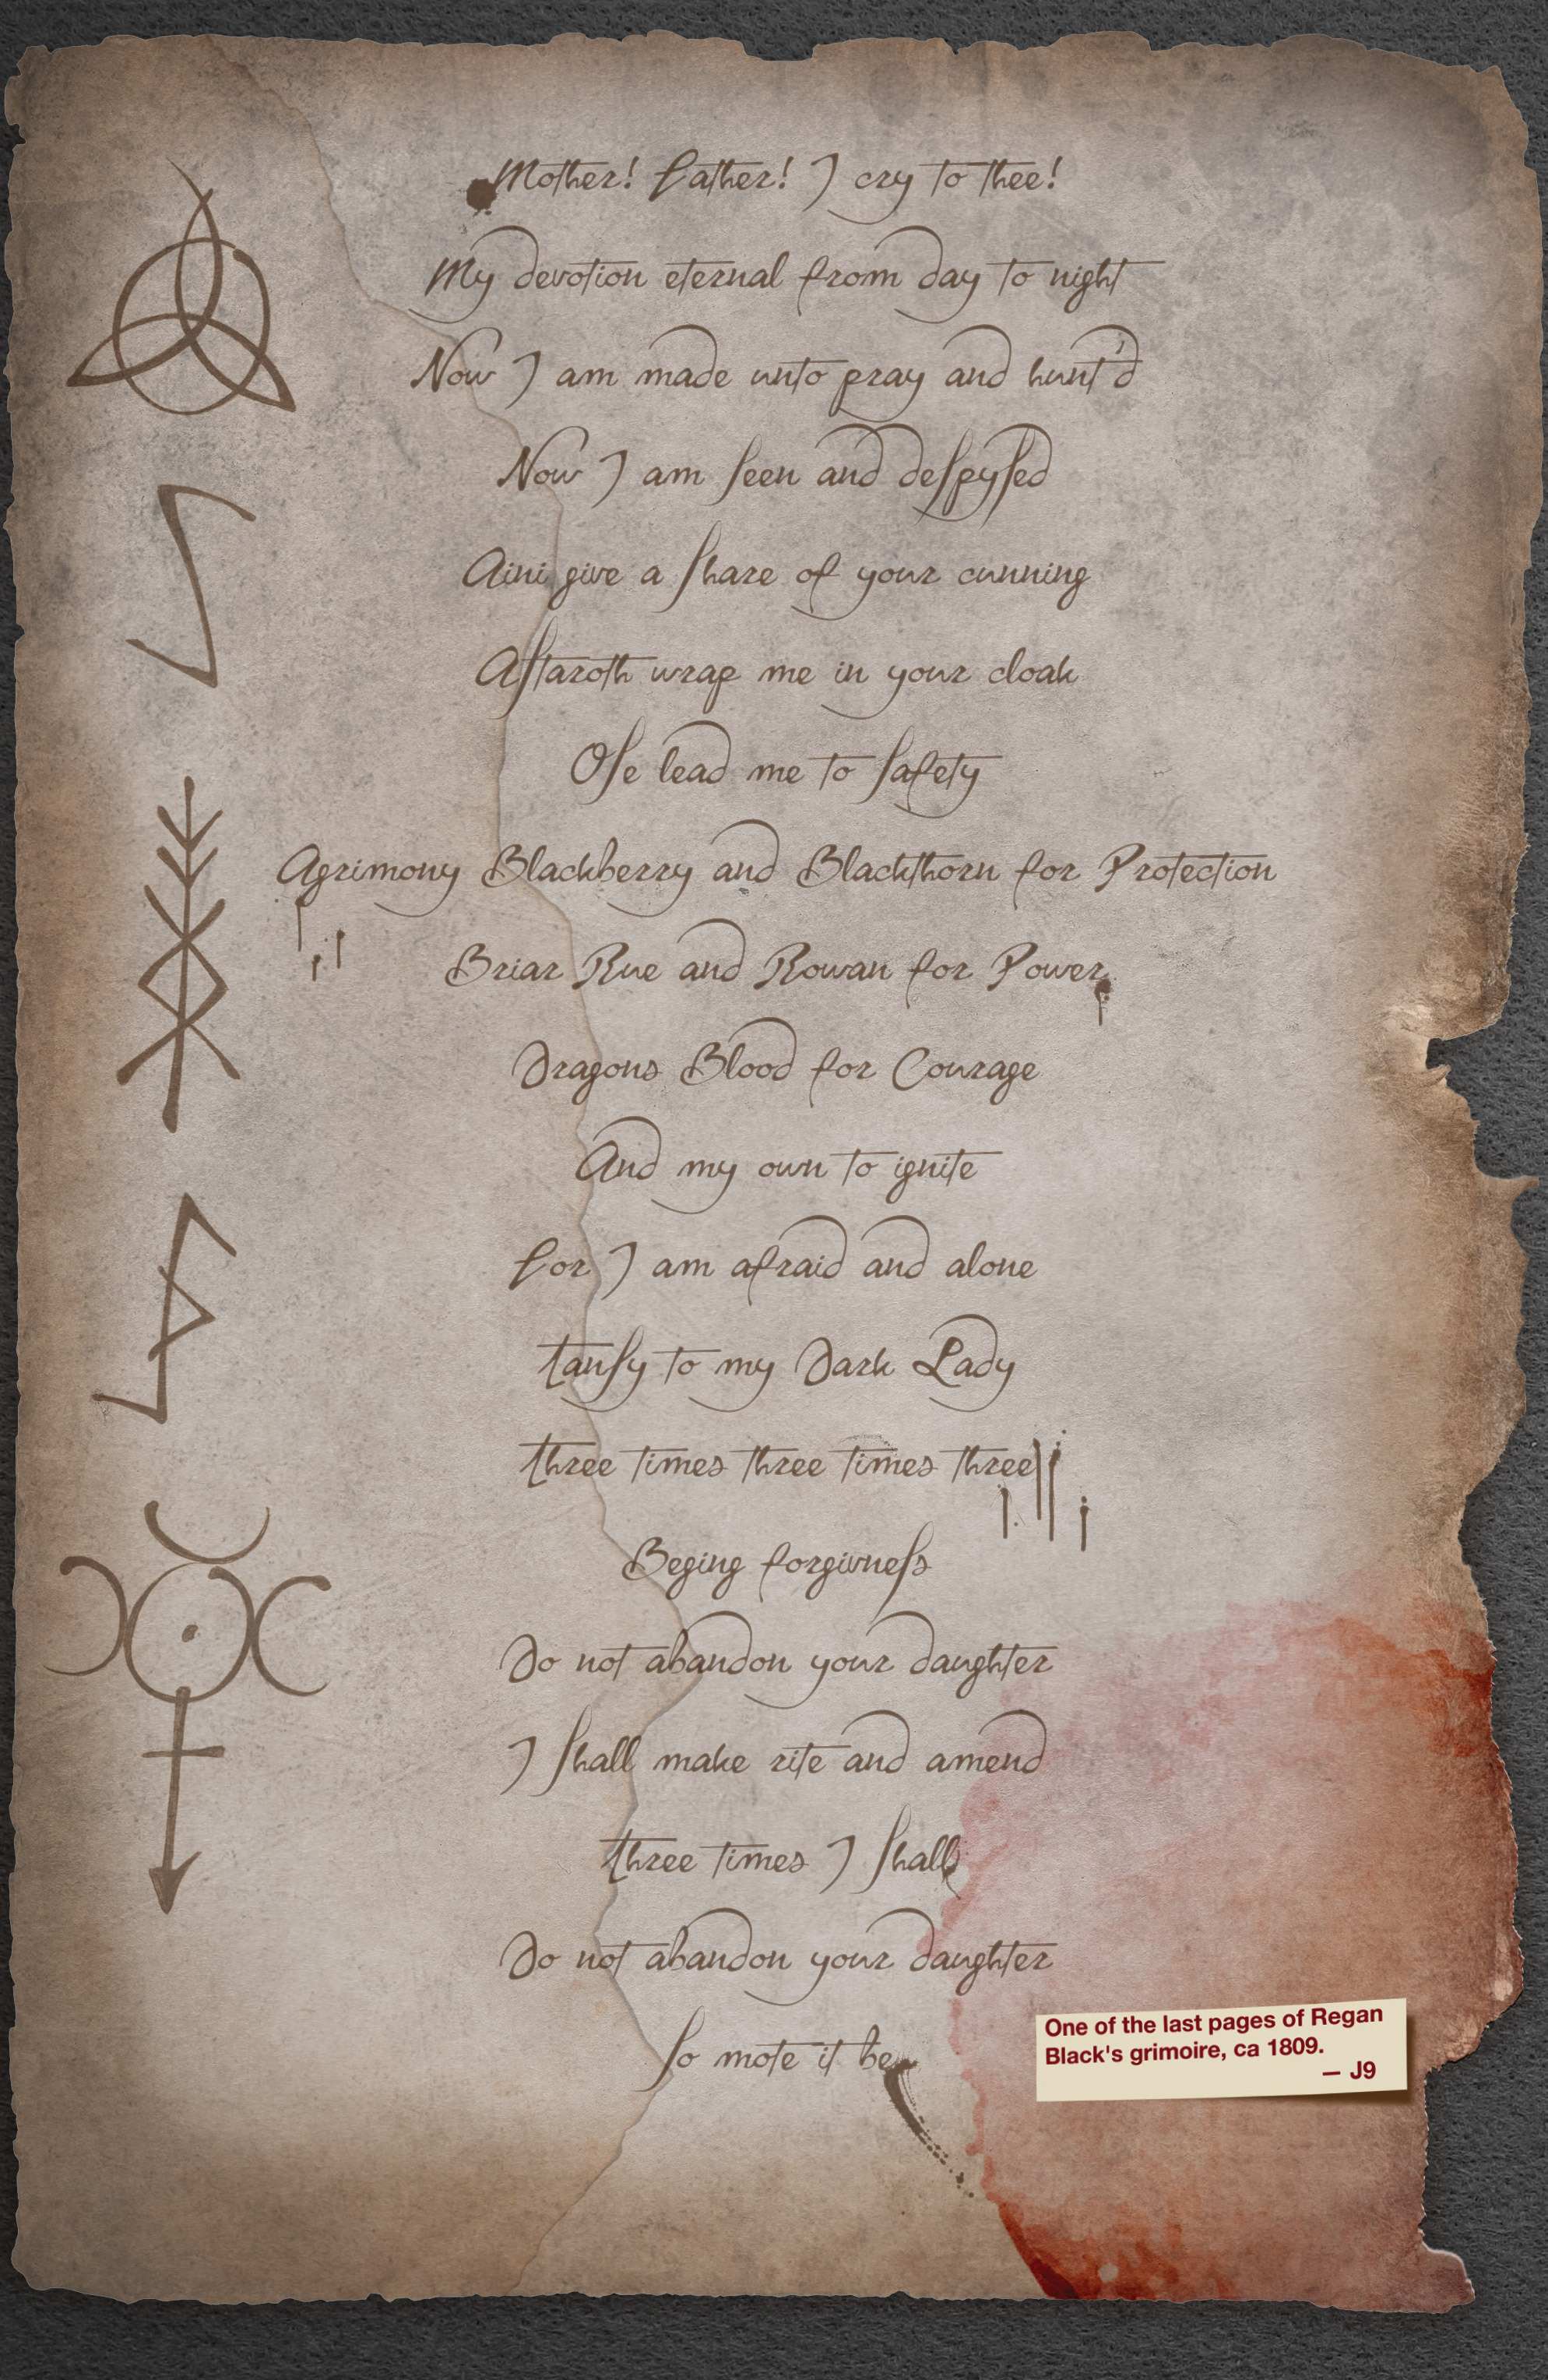 Mother! Father! I cry to thee!
My devotion eternal from day to night
Now I am made unto pray and hunt'd
Now I am ſeen and deſpyſed
Aini give a ſhare of your cunning
Aſtaroth wrap me in your cloak
Oſe lead me to ſafety
Agrimony Blackberry and Blackthorn for Protection
Briar Rue and Rowan for Power
Dragons Blood for Courage
And my own to ignite
For I am afraid and alone
Tanſy to my Dark Lady
Three times three times three
Beging forgivneſs
Do not abandon your daughter
I ſhall make rite and amend
Three times I ſhall
Do not abandon your daughter
ſo mote it be
One of the last pages of Regan
Black's grimoire, ca 1809.
— J9